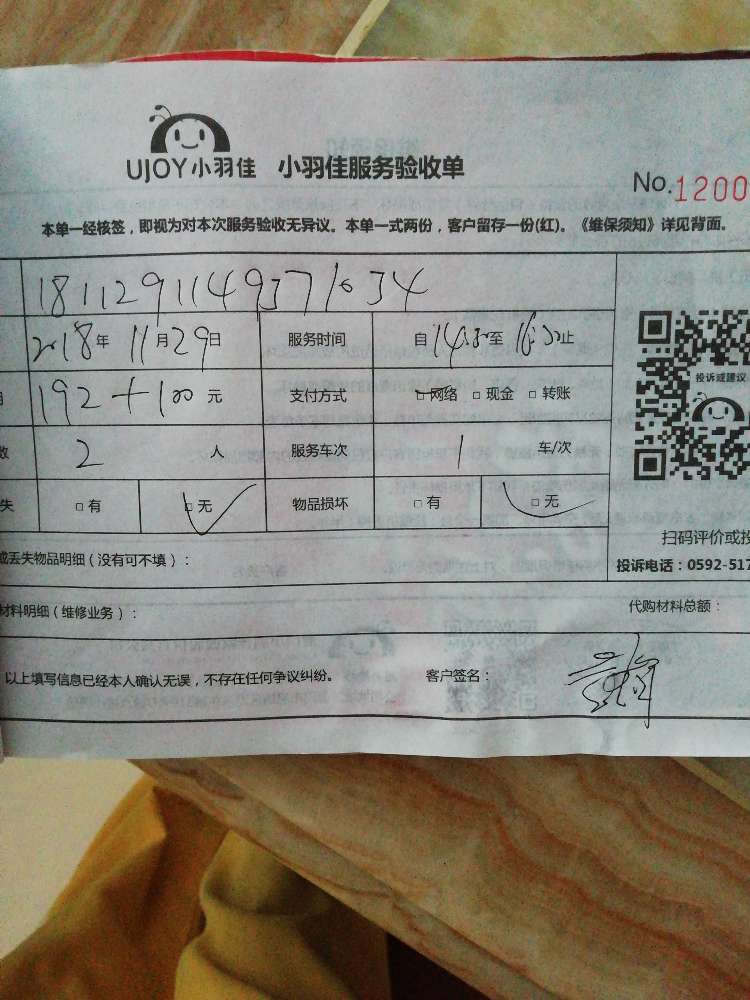 UJOY小羽佳 小羽佳服务验收单
No.1200
本单一经核签，即视为对本次服务验收无异议。本单一式两份，客户留存一份(红)。《维保须知》详见背面。
2018年11月29日 服务时间 自14:30至16:30止
192+100元 支付方式 □网络 □现金 □转账
数 2人 服务车次 1车/次
失 □有 □无 物品损坏 □有 □无
投诉或建议
扫码评价或投
或丢失物品明细（没有可不填）：
投诉电话：0592-517
材料明细（维修业务）：
代购材料总额：
以上填写信息已经本人确认无误，不存在任何争议纠纷。 客户签名：